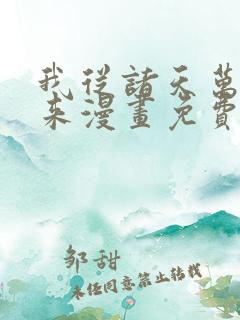 我從諸天萬
來漫畫免費
邹甜
未经同意禁止转载